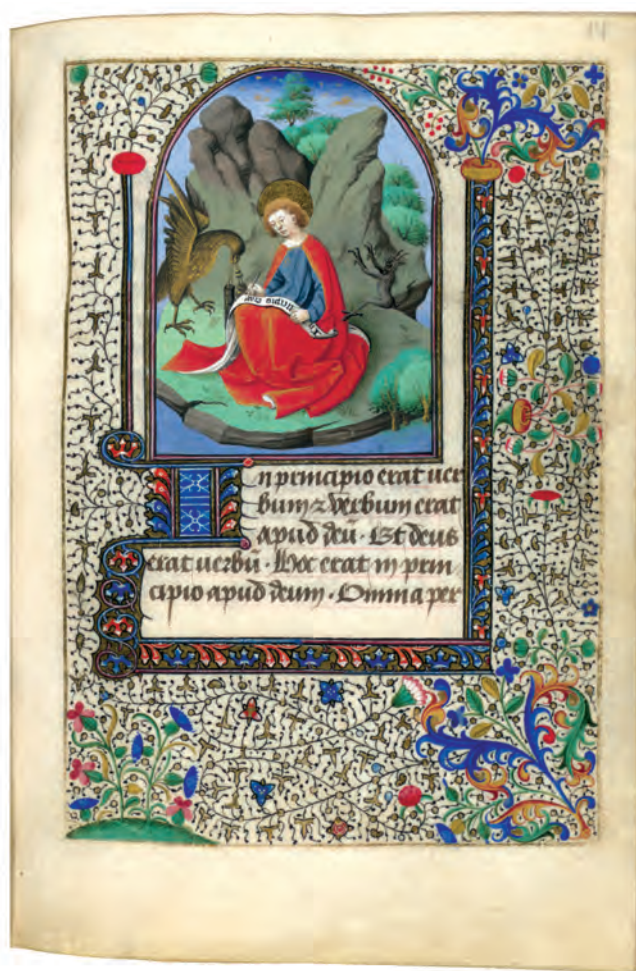 14
In principio erat uer
bum ⁊ verbum erat
apud deū · Et deus
erat uerbū · Hoc erat in prin
cipio apud deum · Omnia per